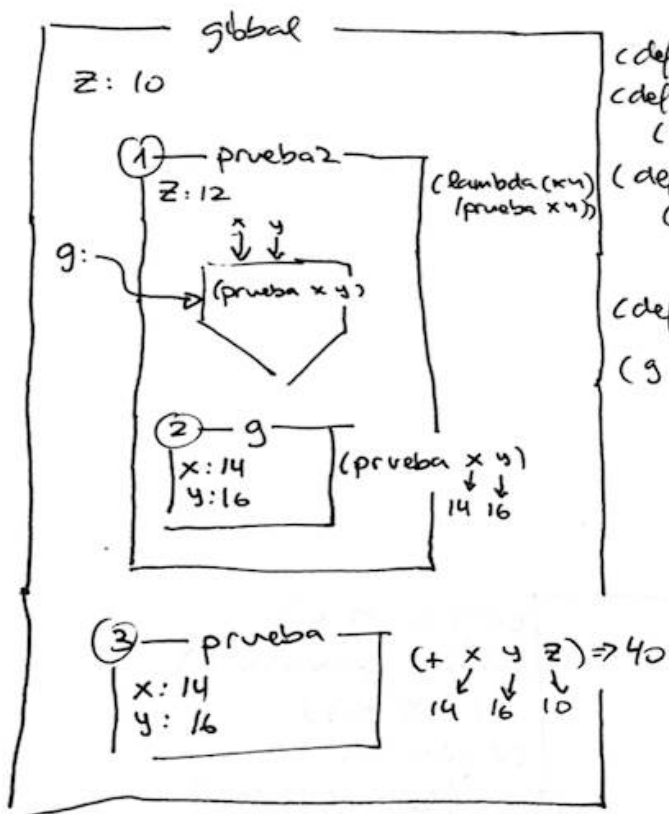 global
z: 10
(def
(def
(
(def
(
(def
(g
1 prueba2
z: 12
(lambda (x y)
(prueba x y))
x y
g:
(prueba x y)
2 g
x: 14
y: 16
(prueba x y)
14 16
3 prueba
x: 14
y: 16
(+ x y z) => 40
14 16 10